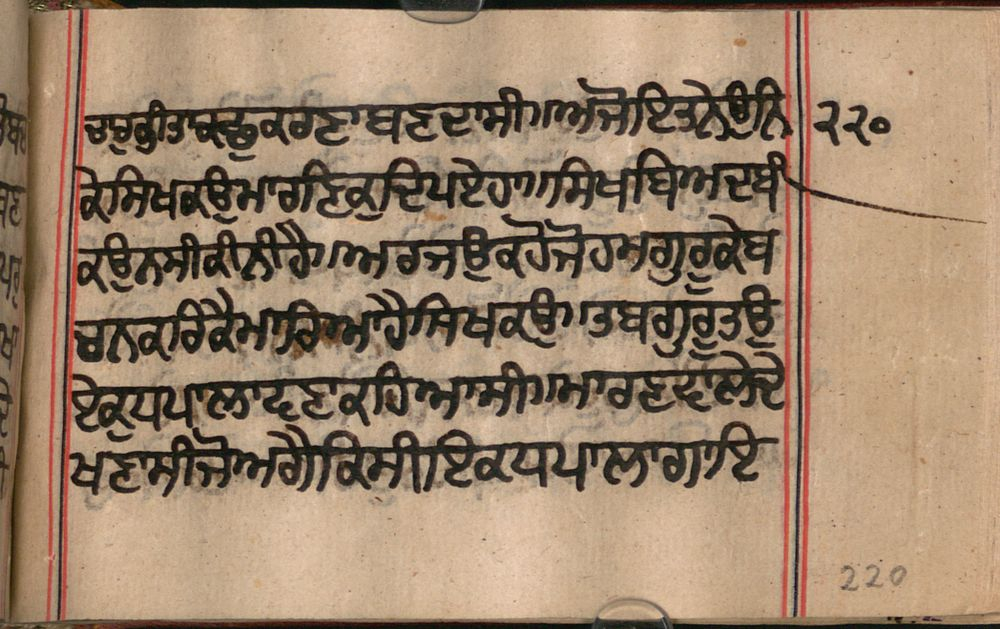 ਚਾਰੁ ਕੀਤਾ ਕਛੁ ਕਰਣਾ ਬਣਦਾ ਸੀ॥ ਅਜੋ ਇਤਨੇ ਉਨਿ ੨੨੦
ਕੇ ਸਿਖ ਕਉ ਮਾਰਣਿ ਕੁਦਿ ਪਏ ਹਾ॥ ਸਿਖ ਬਿਅਦਬੀ
ਕਉਨ ਸੀ ਕੀਨੀ ਹੈ॥ ਅਰਜਉ ਕਹੋ ਜੋ ਹਮ ਗੁਰੁ ਕੇ ਬ
ਚਨ ਕਰਿਕੈ ਮਾਰਿਆ ਹੈ ਸਿਖ ਕਉ॥ ਤਬ ਗੁਰੂ ਤਉ
ਏਕੁ ਧਪਾ ਲਾਵਣ ਕਹਿਆ ਸੀ॥ ਮਾਰਣ ਵਾਲੇ ਦੇ
ਖਣਾ ਸੀ ਜੋ ਅਗੈ ਕਿਸੀ ਇਕ ਧਪਾ ਲਾਗਾਇ
220